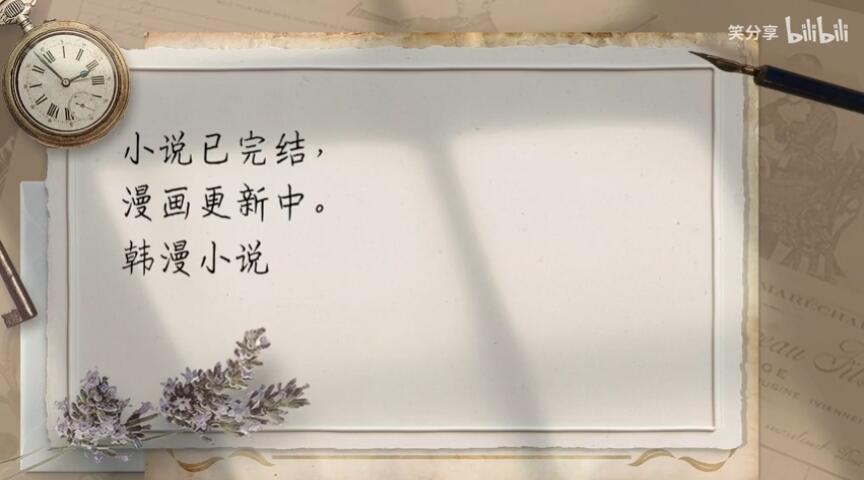 笑分享 bilibili
小说已完结，
漫画更新中。
韩漫小说
MARÉCHAL